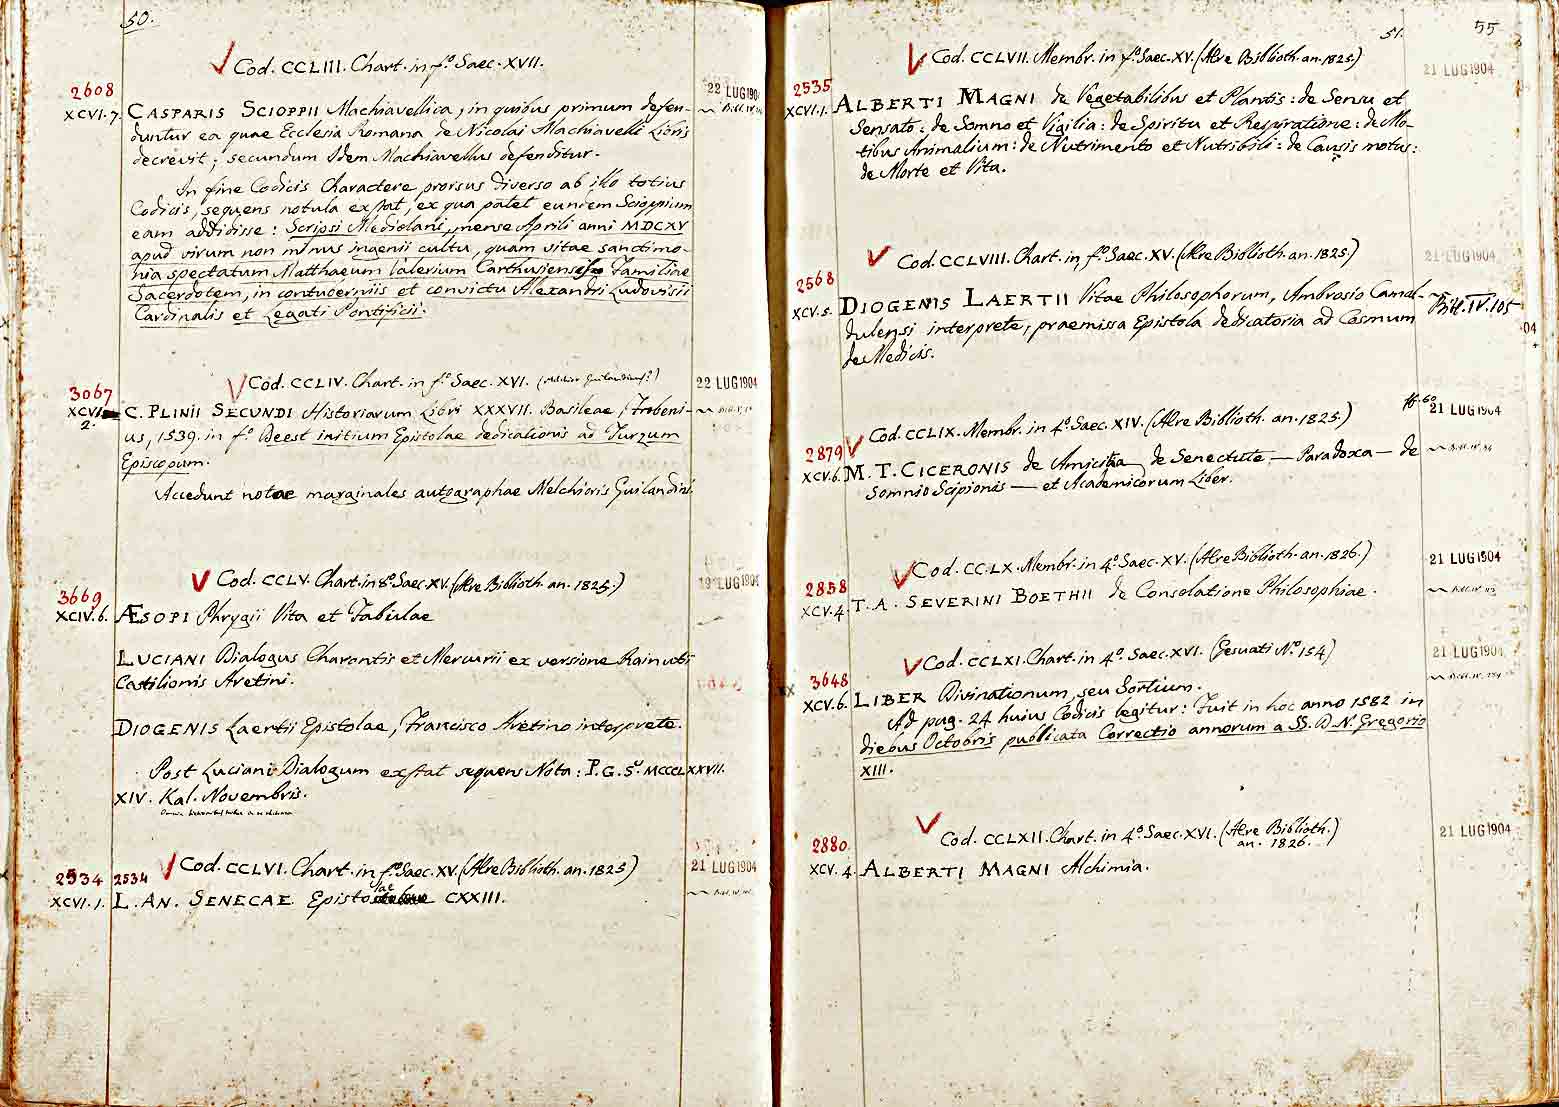 50.
Cod. CCLIII. Chart. in fº. Saec. XVII.
2608
22 LUG 1904
XCVI.7. CASPARIS SCIOPPII Machiavellica, in quibus primum defen-
duntur ea quae Ecclesia Romana de Nicolai Machiavelli Libris
decrevit; secundum Idem Machiavellus defenditur.
In fine Codicis Charactere prorsus diverso ab illo totius
Codicis, sequens notula exstat, ex qua patet eundem Scioppium
eam addidisse: Scripsi Mediolani, mense Aprili anni MDCXV
apud virum non minus ingenii cultu, quam vitae sanctimo-
nia spectatum Matthaeum Valerium Carthusiensis Familiae
Sacerdotem, in contuberniis et convictu Alexandri Ludovisii
Cardinalis et Legati Pontificii.
Cod. CCLIV. Chart. in fº. Saec. XVI. (Melchior Guilandinus?)
3067
22 LUG 1904
XCVI. 2.
C. PLINII SECUNDI Historiarum Libri XXXVII. Basileae, Frobeni-
us, 1539. in fº. Deest initium Epistolae dedicationis ad Turzum
Episcopum.
Accedunt notae marginales autographae Melchioris Guilandini.
Cod. CCLV. Chart. in 8º. Saec. XV. (Alre Biblioth. an. 1825.)
3669
19 LUG 1904
XCIV.6. ÆSOPI Phrygii Vita et Fabulae
LUCIANI Dialogus Charontis et Mercurii ex versione Rainutii
Castilionis Aretini.
DIOGENIS Laertii Epistolae, Francisco Aretino interprete.
Post Luciani Dialogum exstat sequens Nota: P. G. Sº. MCCCLXXVII.
XIV. Kal. Novembris.
Cod. CCLVI. Chart. in fº. Saec. XV. (Alre Biblioth. an. 1825)
2534 2534
21 LUG 1904
XCVI.1. L. AN. SENECAE Epistolae CXXIII.
51.
55
Cod. CCLVII. Membr. in fº. Saec. XV. (Alre Biblioth. an. 1825.)
2535
21 LUG 1904
XCVI.1. ALBERTI MAGNI de Vegetabilibus et Plantis: de Sensu et
Sensato: de Somno et Vigilia: de Spiritu et Respiratione: de Mo-
tibus Animalium: de Nutrimento et Nutribili: de Causis motus:
de Morte et Vita.
Cod. CCLVIII. Chart. in fº. Saec. XV. (Alre Biblioth. an. 1825.)
2568
21 LUG 1904
XCV.5. DIOGENIS LAERTII Vitae Philosophorum, Ambrosio Camal-
Bibl. IV. 105
dulensi interprete, praemissa Epistola dedicatoria ad Cosmum
de Medicis.
Cod. CCLIX. Membr. in 4º. Saec. XIV. (Alre Biblioth. an. 1825.)
ff. 60
21 LUG 1904
2879
XCV.6. M. T. CICERONIS de Amicitia, de Senectute — Paradoxa — de
Somnio Scipionis — et Academicorum Liber.
Cod. CCLX. Membr. in 4º. Saec. XV. (Alre Biblioth. an. 1826.)
21 LUG 1904
2858
XCV.4. T. A. SEVERINI BOETHII de Consolatione Philosophiae.
Cod. CCLXI. Chart. in 4º. Saec. XVI. (Gesuati Nº. 154)
21 LUG 1904
3648
XCV.6. LIBER Divinationum, seu Sortium.
Ad pag. 24 huius Codicis legitur: Fuit in hoc anno 1582 in
diebus Octobris publicata Correctio annorum a SS. D. N. Gregorio
XIII.
Cod. CCLXII. Chart. in 4º. Saec. XVI. (Alre Biblioth.
an. 1826.)
21 LUG 1904
2880
XCV.4. ALBERTI MAGNI Alchimia.